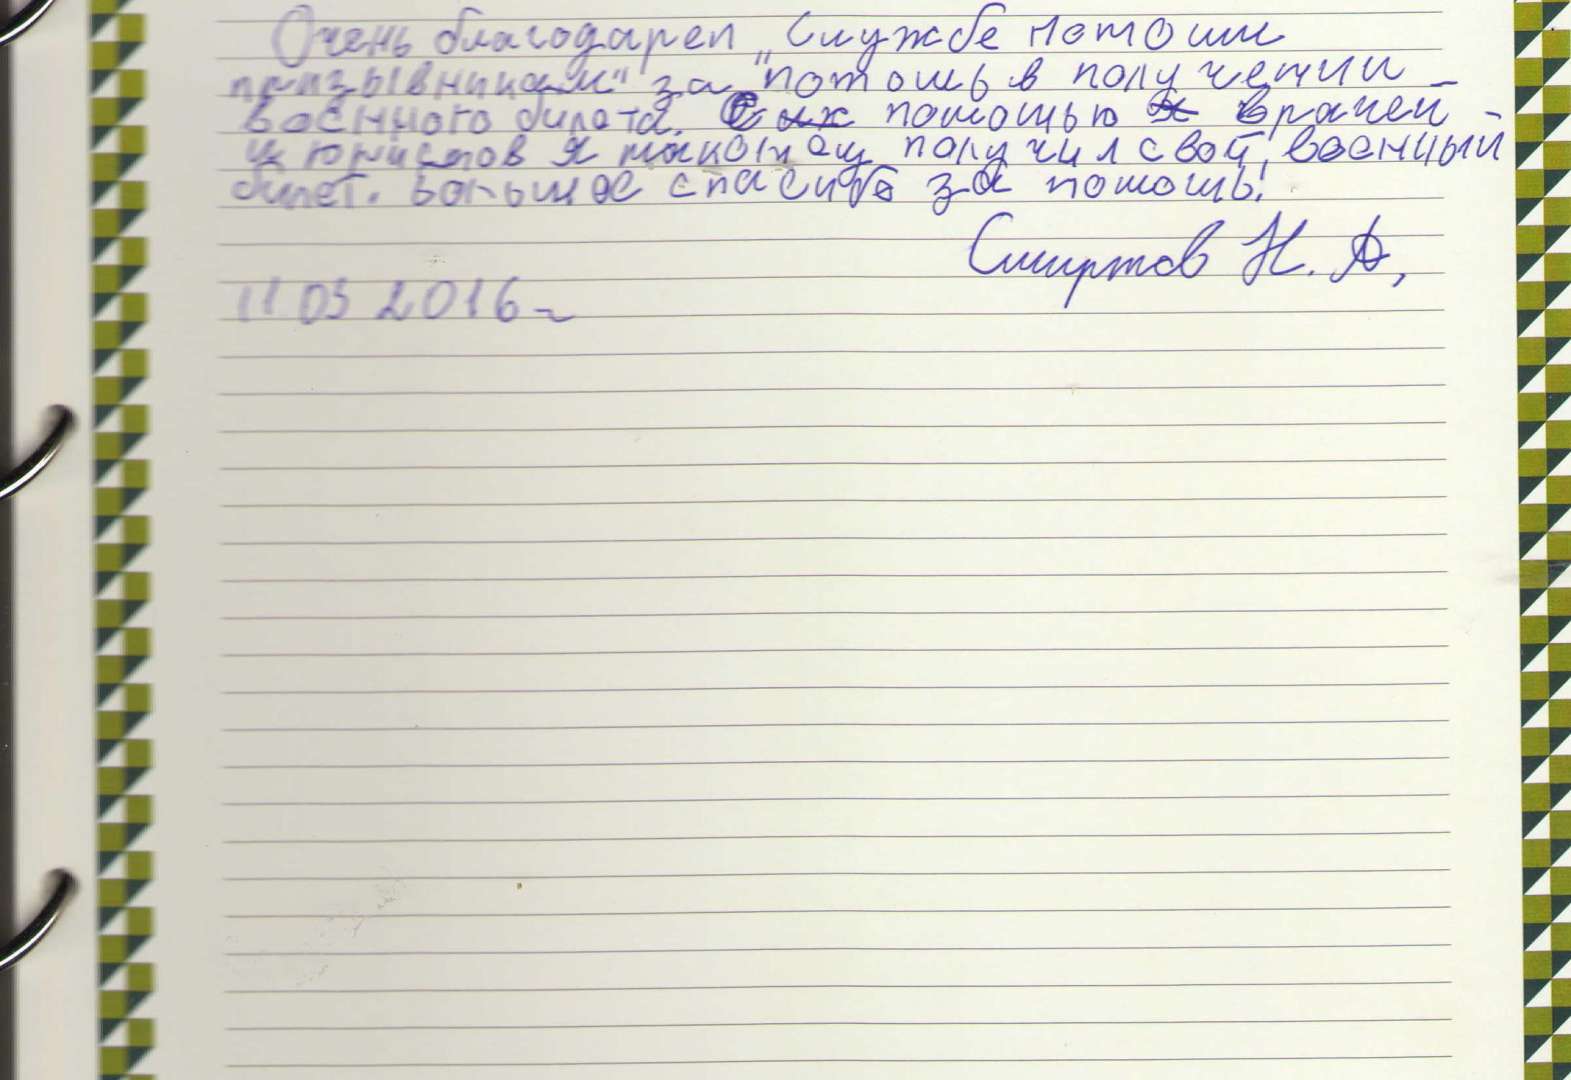 Очень благодарен „Службе помощи
призывникам" за помощь в получении
военного билета. С их помощью врачей
и юристов я наконец получил свой военный
билет. Большое спасибо за помощь!
Смирнов Н. А.
11.03 2016 г